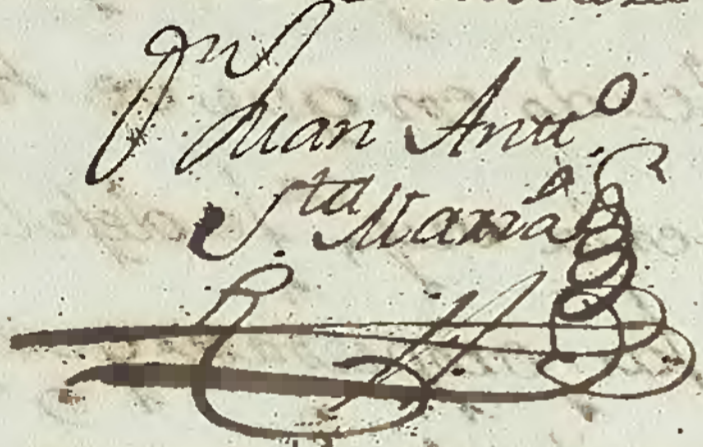 Juan Antº
Sta Maria